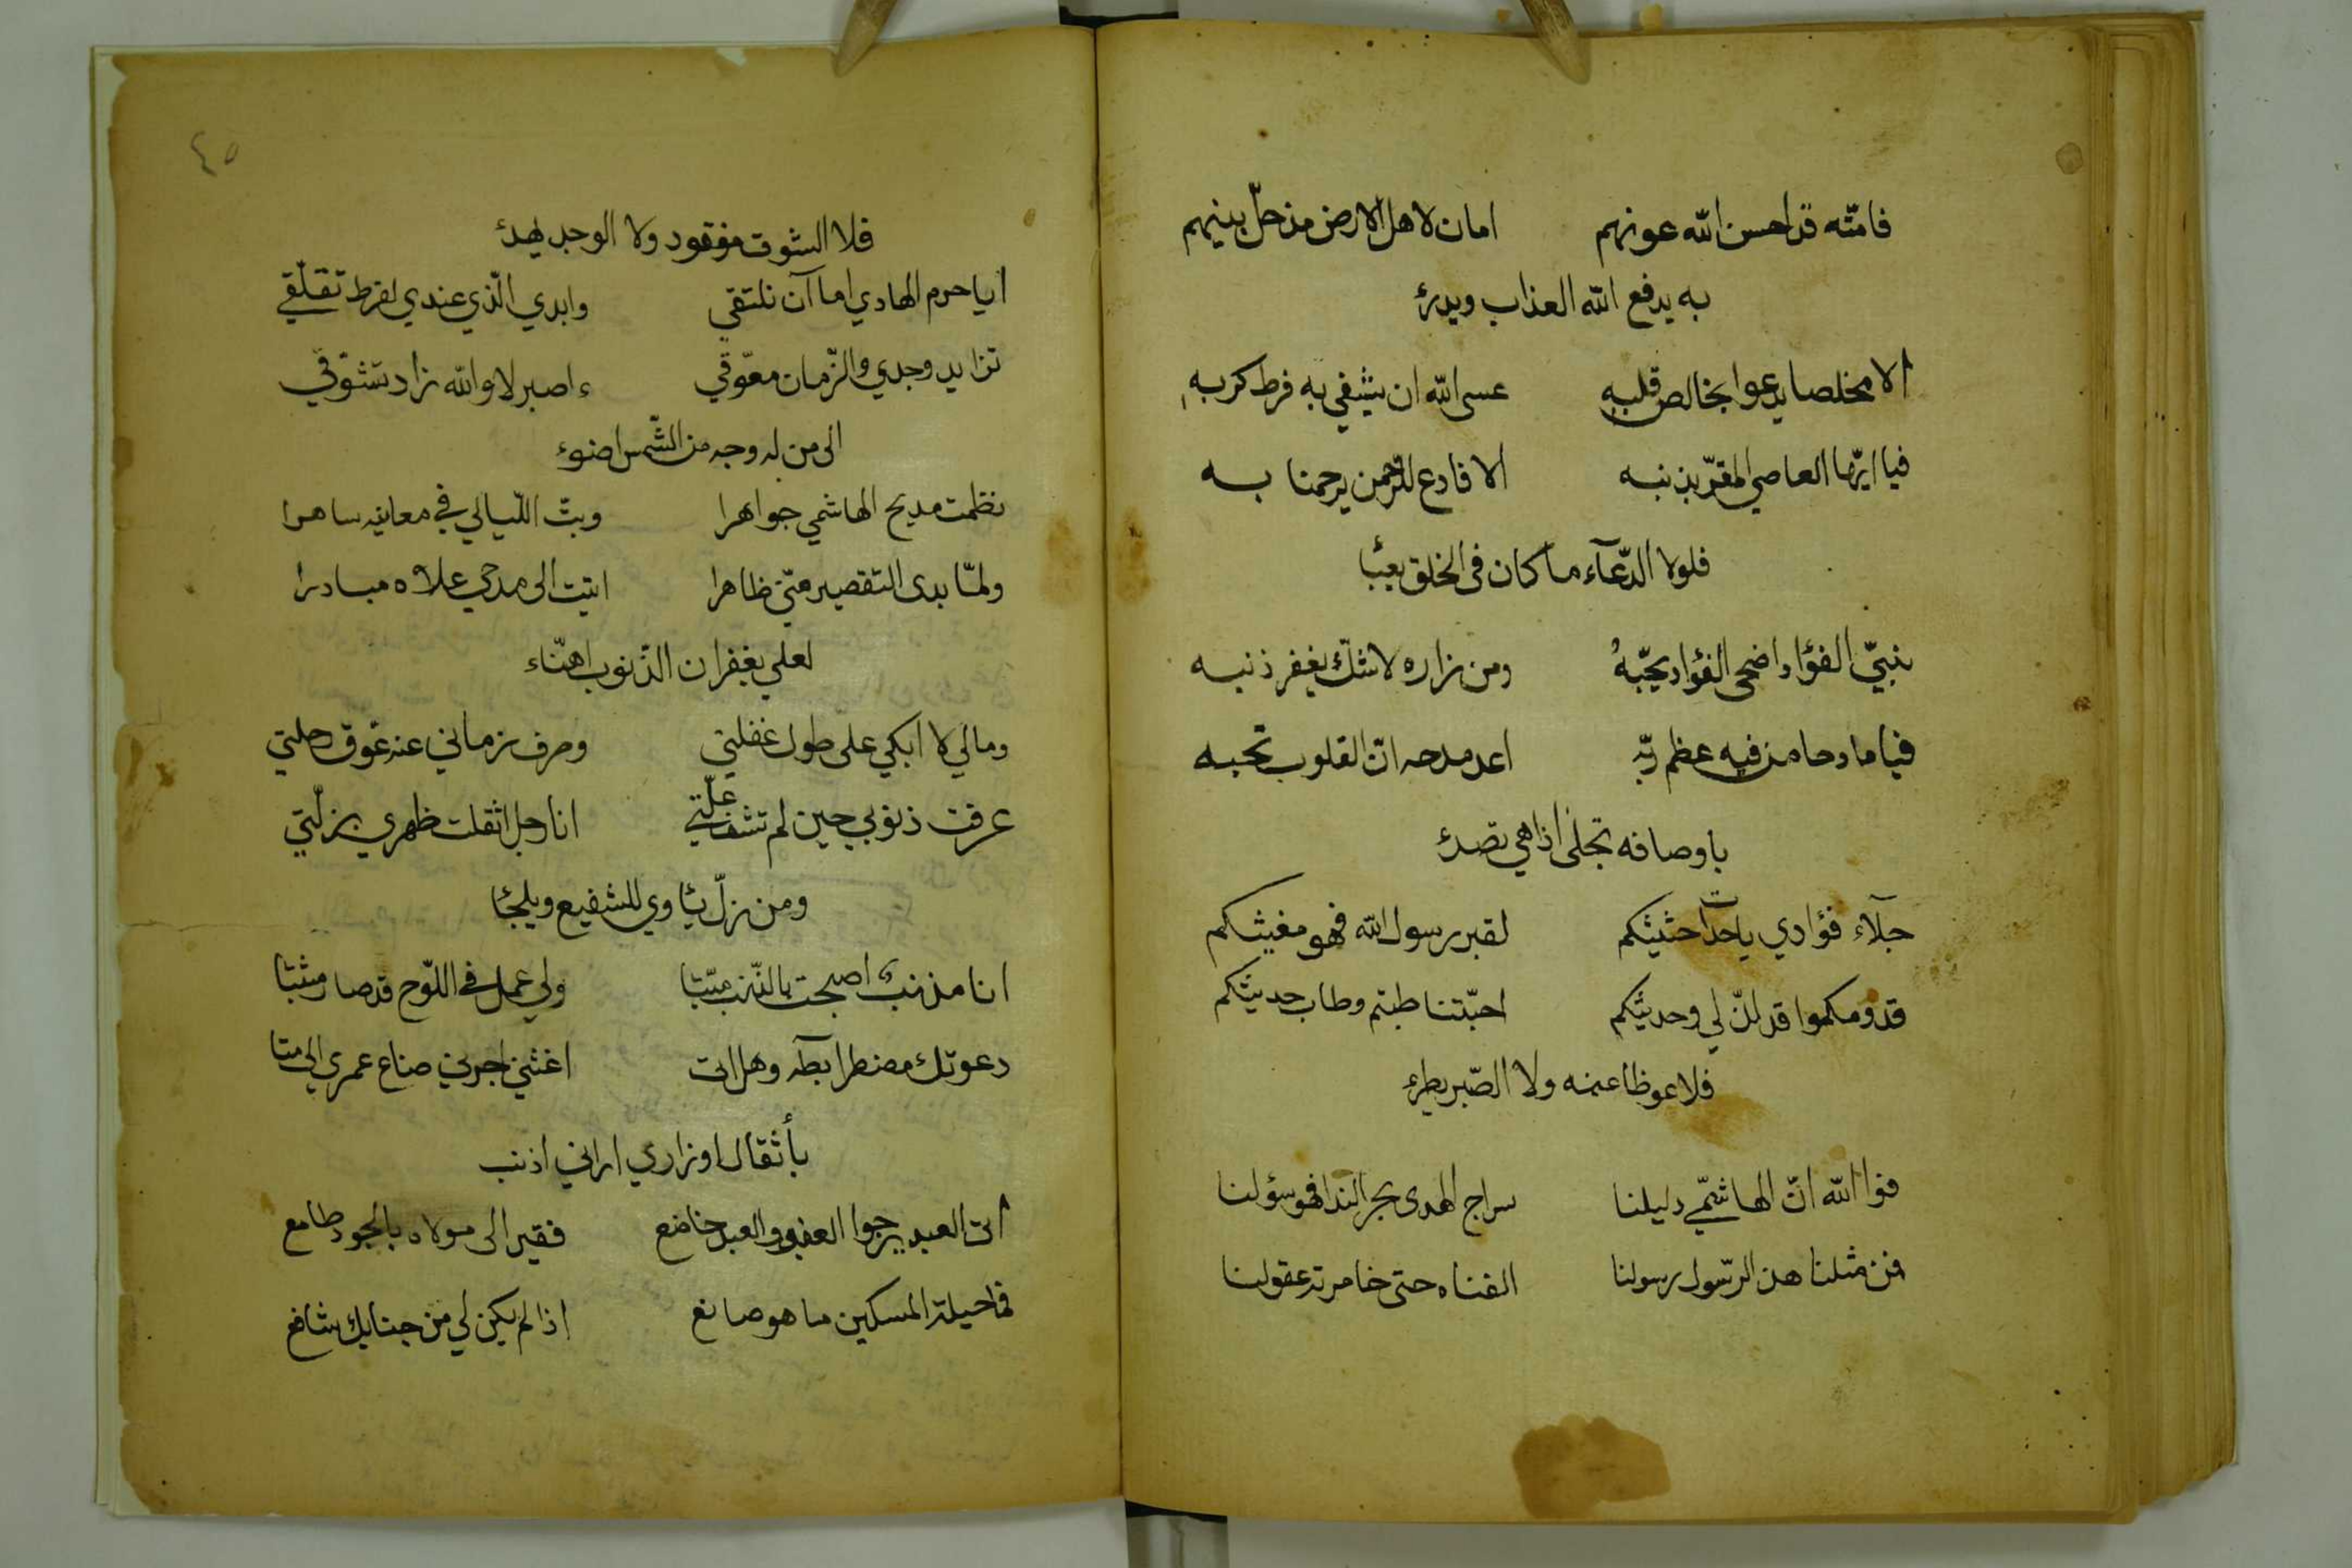 فامّته قد احسن الله عونهم امان لاهل الارض مذ حلّ بينهم
به يدفع الله العذاب ويدرئ
الا مخلصا يدعوا بخالص قلبه عسى الله ان يشفي به فرط كربه
فيا ايّها العاصي المقرّ بذنبه الا فادع للرّحمن يرحمنا به
فلولا الدّعآء ما كان في الخلق يعبأ
بنبيّ الفؤاد اضحى الفؤاد يحبّهُ ومن زاره لا شكّ يغفر ذنبه
فيا مادحا من فيه عظم ربّه اعد مدحه انّ القلوب تحبه
باوصافه تجلى اذا هي تصدئ
جلآء فؤادي يا حداة حثيثكم لقبر رسول الله فهو مغيثكم
قدومكموا قد لذّ لي وحديثكم احبّتنا طبتم وطاب حديثكم
فلا عوظا عنه ولا الصّبر يطرئ
فوا الله انّ الهاشمّي دليلنا سراج الهدى بحر الندا فهو سؤلنا
فمن مثلنا هذ الرّسول رسولنا الفناه حتى خامرته عقولنا
٤٥
فلا الشوق مفقود ولا الوجد يهدئ
ايا حرم الهادي اما آن نلتقي وابدي الّذي عندي لفرط تقلّقي
تزايد وجدي والزّمان معوّقي ءاصبر لا والله زاد تشوّقي
الى من له وجه من الشّمس اضوء
نظمت مديح الهاشمي جواهرا وبتّ اللّيالي في معانيه ساهرا
ولمّا بدى التقصير منّي ظاهرا اتيت الى مدحي علاه مبادرا
لعلي بغفران الذّنوب اهنّاء
ومالي لا ابكي على طول غفلتي وصرف زماني عنه عوّق رحلتي
عرفت ذنوبي حين لم تشف علّتي انا رجل اثقلت ظهري بزلّتي
ومن زلّ يئاوي للشفيع ويلجئا
انا مذنب اصبحت بالذّنب ميّتا ولي عمل في اللّوح قد صار مثبتا
دعوتك مضطرا بطه وهل اتى اغثني اجرني ضاع عمري الى متا
بأثقال اوزاري اراني اذنب
اتى العبد يرجوا العفو والعبد خاضع فقير الى مولاه بالجود طامع
فما حيلة المسكين ما هو صانع اذا لم يكن لي من جنابك شافع